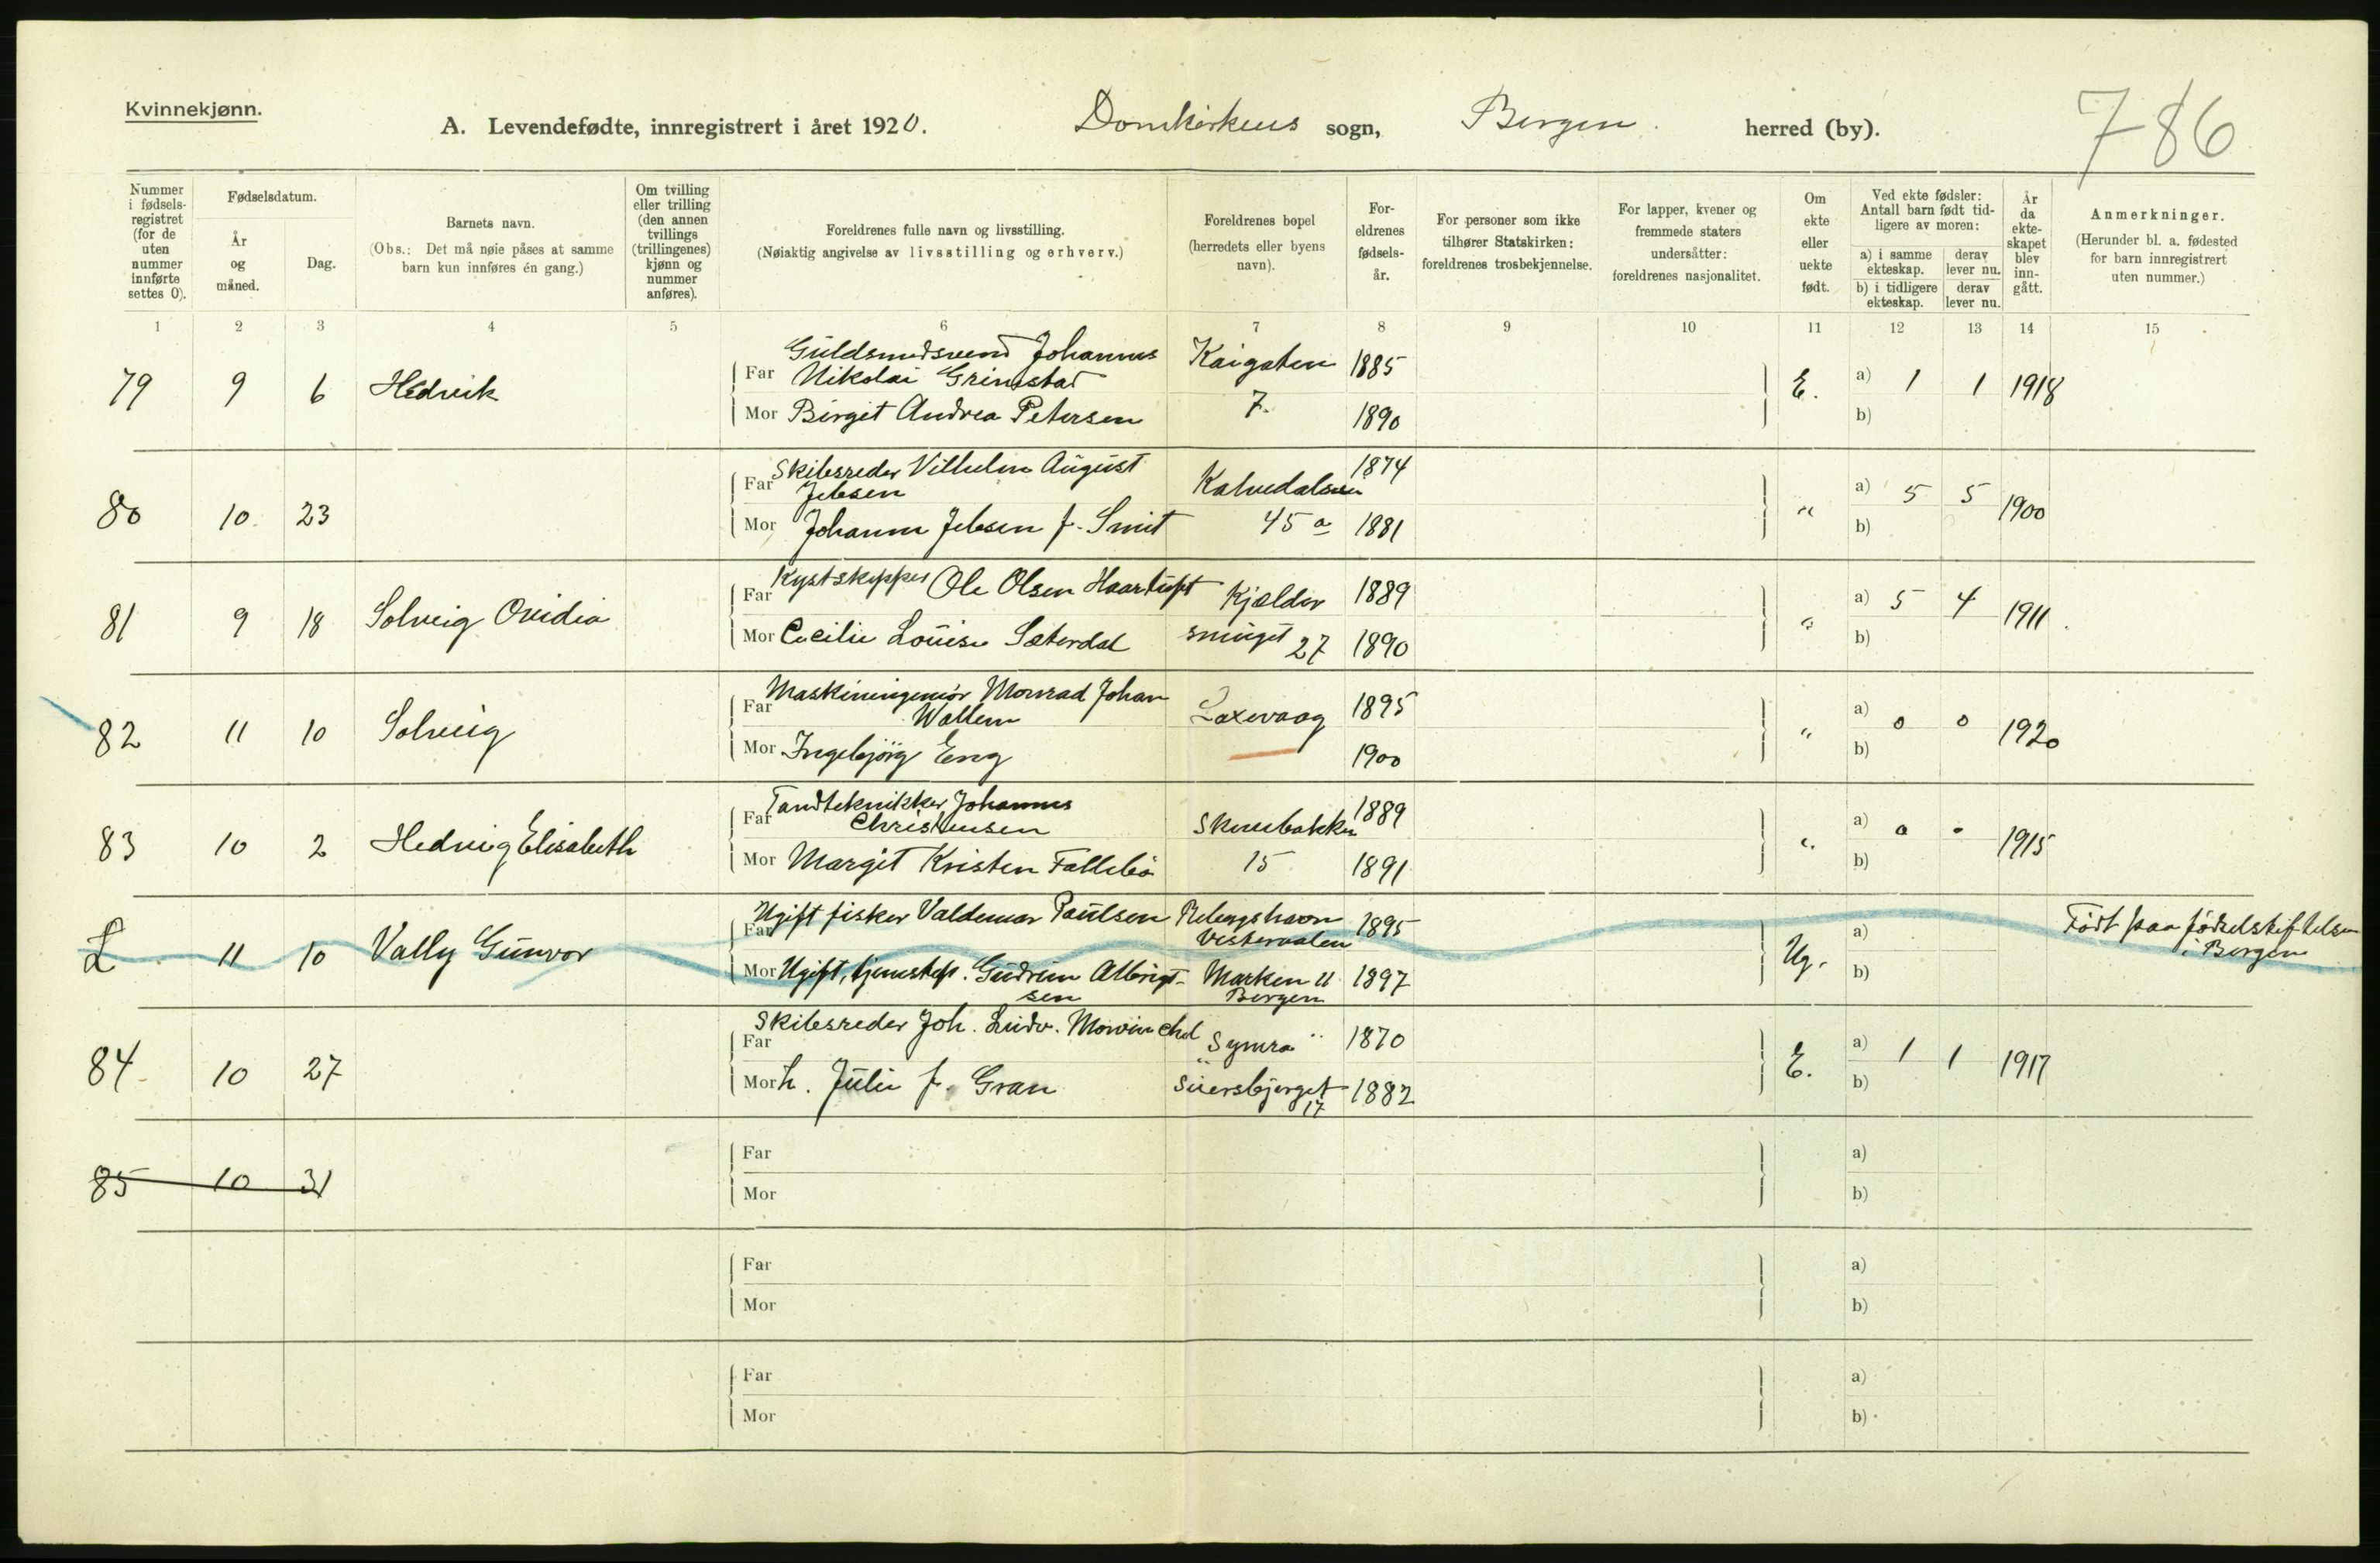 Kvinnekjønn.
A. Levendefødte, innregistrert i året 1920. Domkirkens sogn, Bergen. herred (by). 786
Nummer i fødselsregistret (for de uten nummer innførte settes 0).
Fødselsdatum.
År og måned.
Dag.
Barnets navn.
(Obs.: Det må nøie påses at samme barn kun innføres én gang.)
Om tvilling eller trilling (den annen tvillings (trillingenes) kjønn og nummer anføres).
Foreldrenes fulle navn og livsstilling.
(Nøiaktig angivelse av livsstilling og erhverv.)
Foreldrenes bopel (herredets eller byens navn).
Foreldrenes fødselsår.
For personer som ikke tilhører Statskirken: foreldrenes trosbekjennelse.
For lapper, kvener og fremmede staters undersåtter: foreldrenes nasjonalitet.
Om ekte eller uekte født.
Ved ekte fødsler: Antall barn født tidligere av moren:
a) i samme ekteskap. derav lever nu.
b) i tidligere ekteskap. derav lever nu.
År da ekteskapet blev inngått.
Anmerkninger.
(Herunder bl. a. fødested for barn innregistrert uten nummer.)
1 2 3 4 5 6 7 8 9 10 11 12 13 14 15
79 9 6 Hedvik
Far Guldsmedsvend Johannes
Nikolai Grimstad Kaigaten 1885
Mor Birget Andrea Petersen 7. 1890
E. a) 1 1 1918
b)
80 10 23
Far Skibsreder Vilhelm August
Jebsen Kalvedalsvei 1874
Mor Johanne Jebsen f. Smit 45 a 1881
" a) 5 5 1900
b)
81 9 18 Solveig Ovidia
Far Kystskipper Ole Olsen Haartuft Kjælder 1889
Mor Cecilie Louise Sæterdal smuget 27 1890
" a) 5 4 1911
b)
82 11 10 Solveig
Far Maskiningeniør Monrad Johan
Wallem Laxevaag 1895
Mor Ingebjörg Eng 1900
" a) 0 0 1920
b)
83 10 2 Hedvig Elisabeth
Far Tandteknikker Johannes
Christensen Skivebakken 1889
Mor Margit Kristen 15 1891
" a) 0 0 1915
b)
L 11 10 Vally Gunvor
Far Ugift fisker Valdemar Paulsen
Vesteraalen 1895
Mor Ugift, tjenestep. Gudrun Albrigtsen Marken 11
Bergen 1897
Ug. a)
b)
Født paa fødselstiftelsen
i Bergen
84 10 27
Far Skibsreder Joh. Ludv. Mowinckel "Symra" 1870
Mor h. Julie f. Gran 17 1882
E. a) 1 1 1917
b)
85 10 31
Far
Mor
a)
b)
Far
Mor
a)
b)
Far
Mor
a)
b)